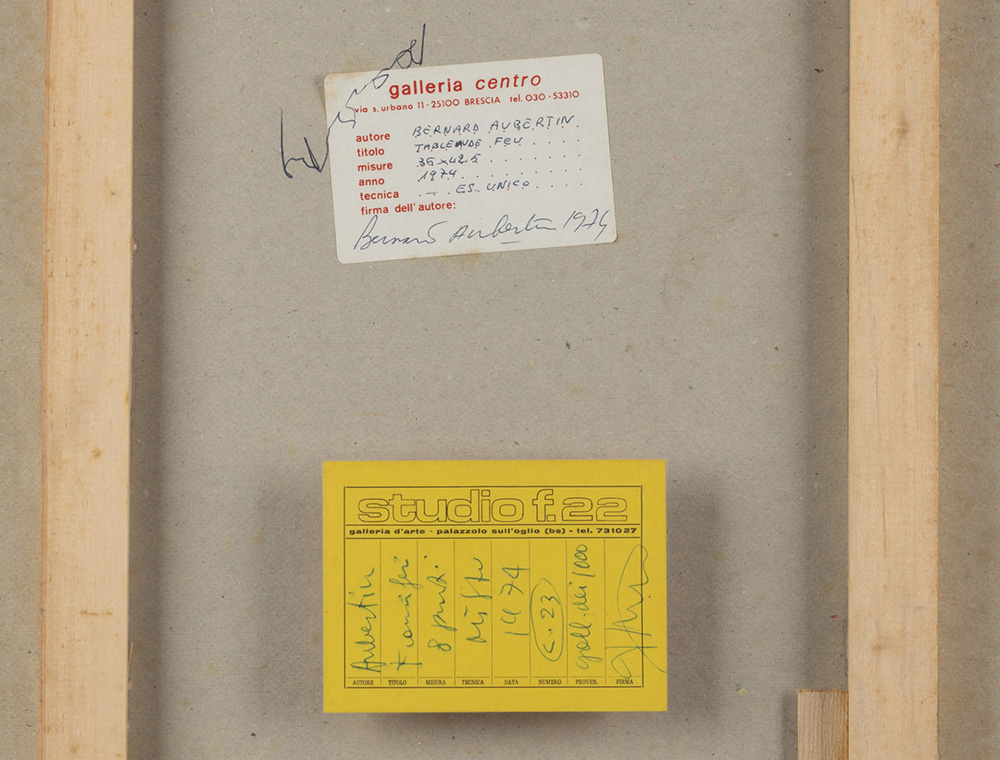 galleria centro
via s. urbano 11 - 25100 BRESCIA tel. 030 - 53310
autore BERNARD AUBERTIN
titolo TABLEAU DE FEU
misure 36 x 42.5
anno 1974
tecnica - ES. UNICO
firma dell'autore:
Bernard Aubertin 1974
studio f.22
galleria d'arte - palazzolo sull'oglio (bs) - tel. 731027
Aubertin
1974
c. 23
gall. dei 1000
AUTORE TITOLO MISURA TECNICA DATA NUMERO PROVEN. FIRMA